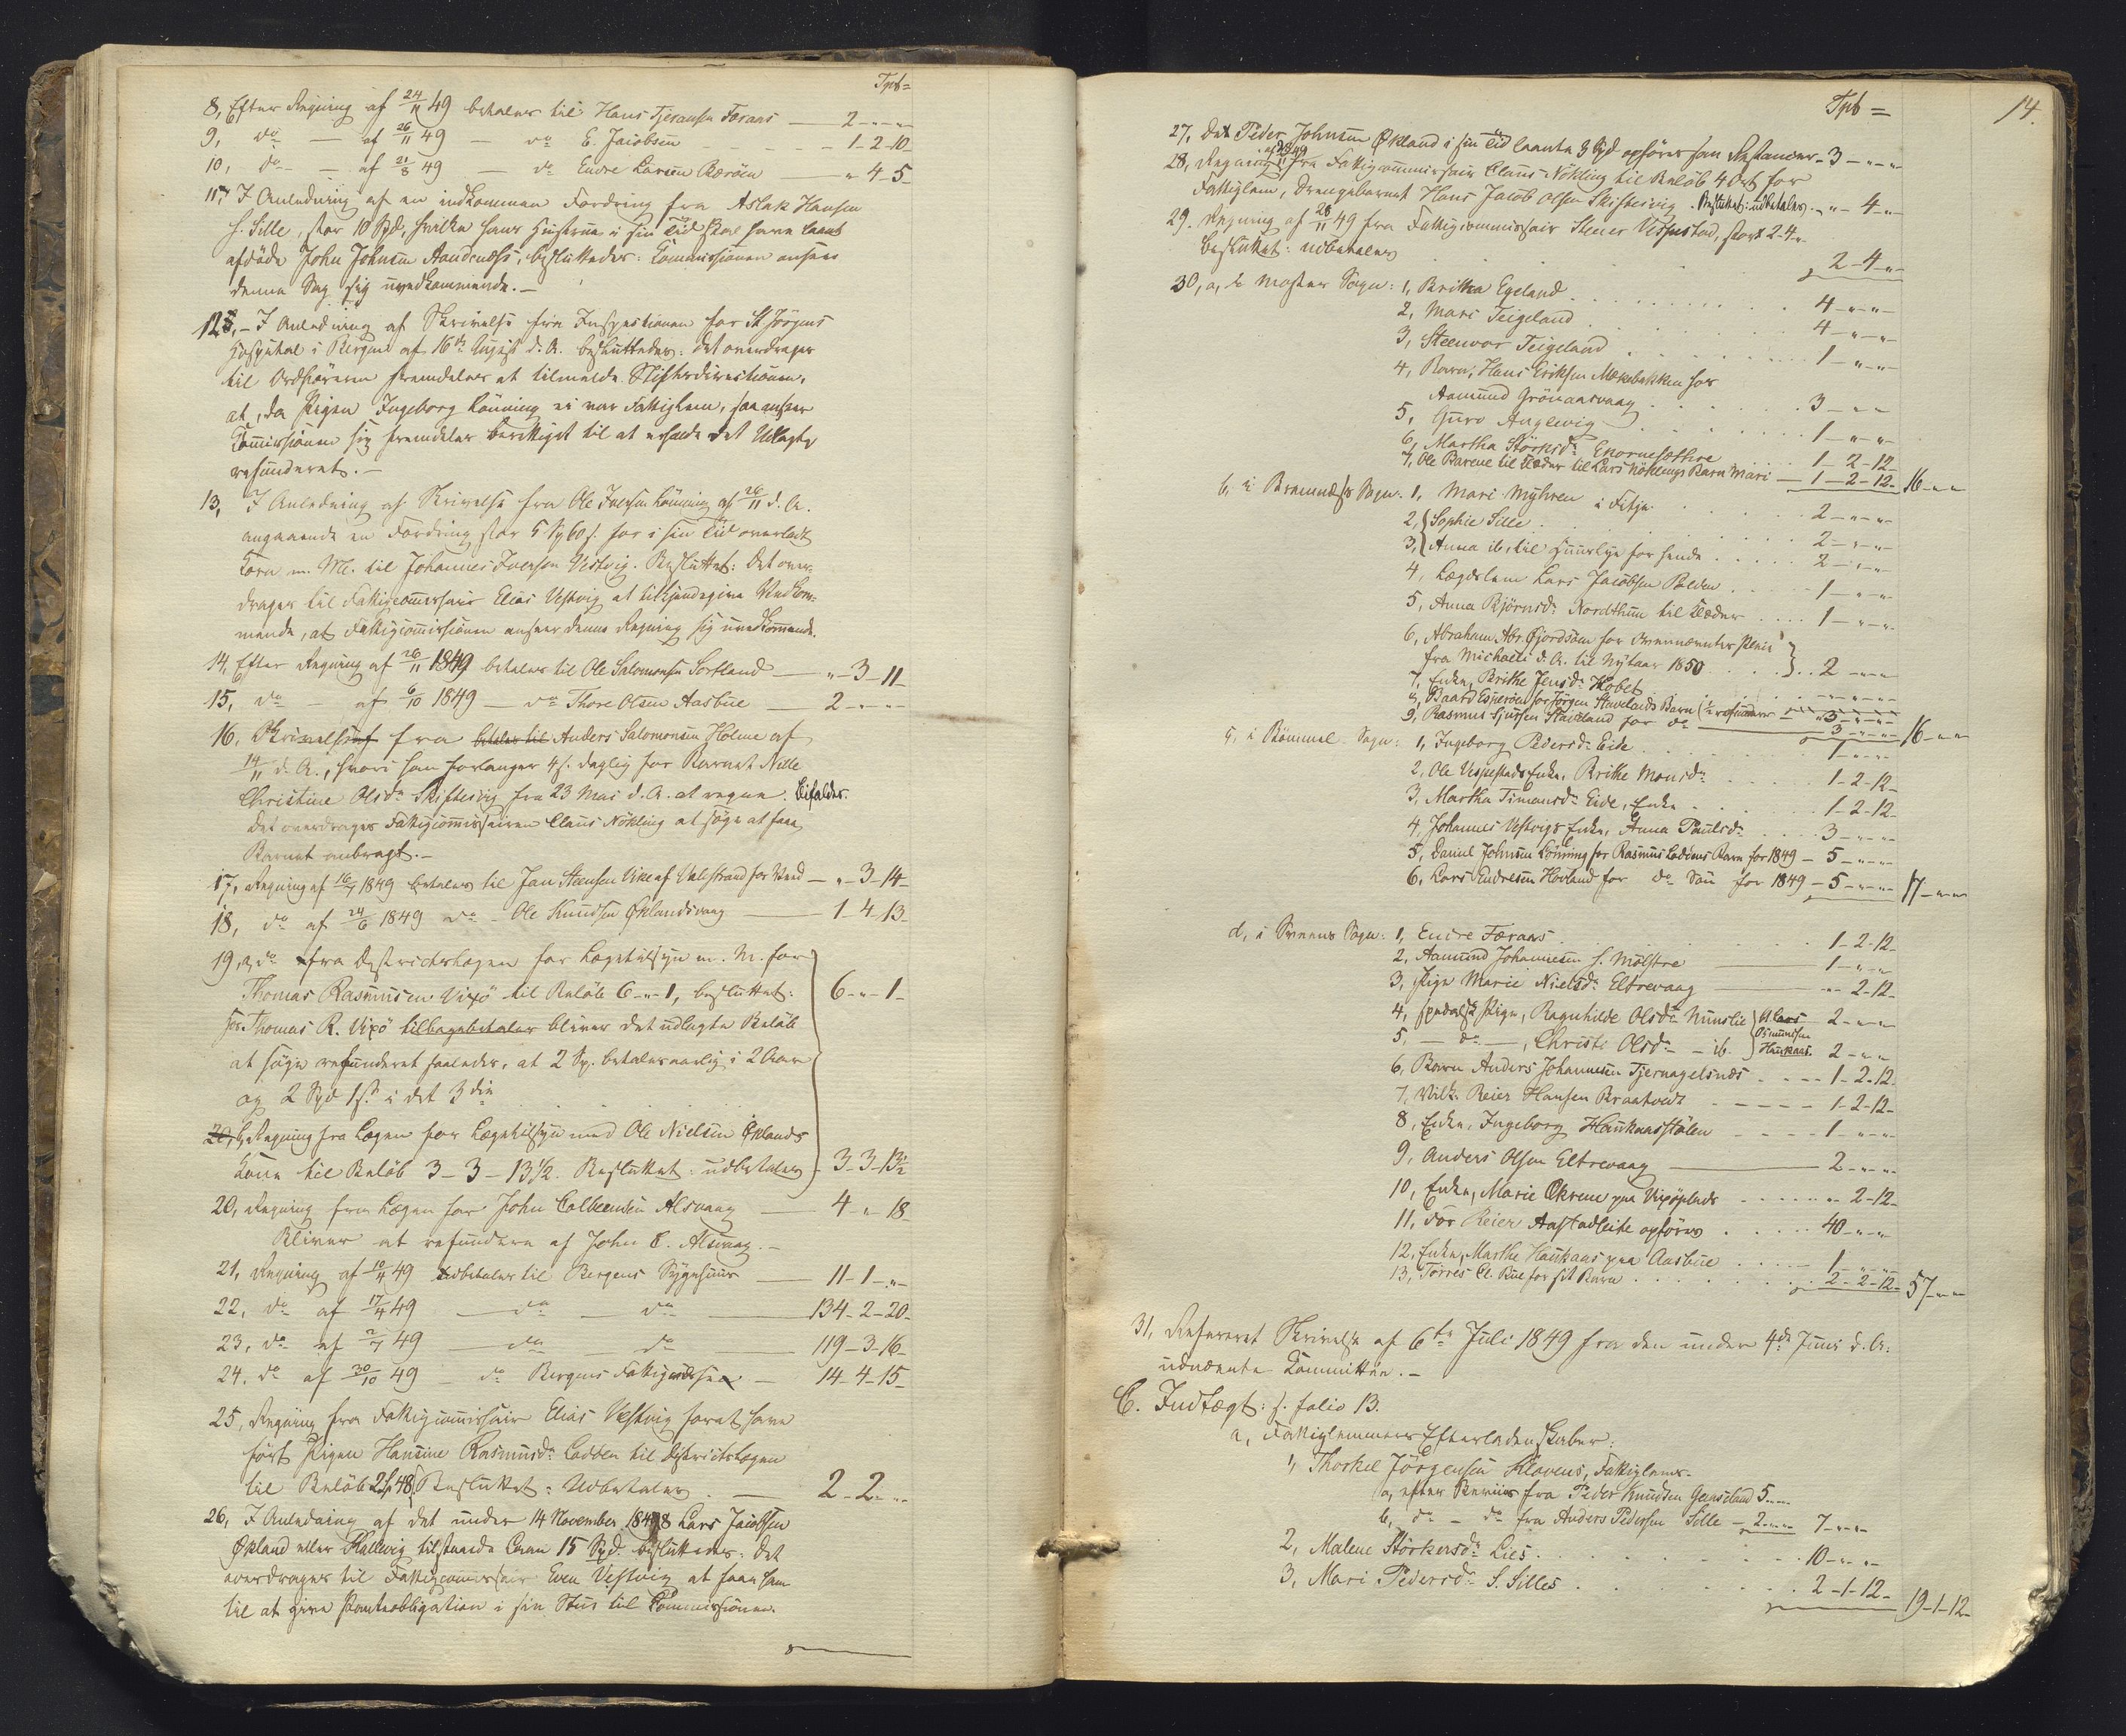 Spd=
8, Efter Regning af 24/11 49 betales til Hans Tjeransen Færaas — 2-"-"-
9, do — af 26/11 49 — do E. Jacobsen - - - - 1-2-10-
10, do — af 21/8 49 — do Endre Larsen Børøen — "-4-5-
11, I Anledning af en indkommen Fordring fra Aslak Hansen
s. Sille, stor 10 Spd, hvilke hans Hustrue i sin Tid skal have laant
afdøde John Johnsen Aandenæss, besluttedes: Commissionen ansees
denne Sag sig uvedkommende.—
12, – I Anledning af Skrivelse fra Inspectionen for St Jørgens
Hospital i Bergen af 16de August d. A. besluttedes: Det overdrages
til Ordføreren fremdeles at tilmelde Stiftsdirectionen,
at, da Pigen Ingeborg Lønning ei var Fattiglem, saa anseer
Commissionen sig fremdeles berettiget til at erholde det Udlagte
refunderet.—
13, I Anledning af Skrivelse fra Ole Iversen Lønning af 26/11 d. A.
angaaende en Fordring stor 5 Sp 60 s. for i sin Tid overladt
Korn m. M. til Johannes Iverson Vestvig. Besluttet: Det over-
drages til Fattigcommissair Elias Vestvig at tilkjendegive Vedkom-
mende, at Fattigcommissionen anseer denne Regning sig uvedkommende.
14, Efter Regning af 26/11 1849 betales til Ole Salomonsen Sortland — "-3-11-
15, do — af 6/10 1849 — do Thore Olsen Aasbue — 2-"-"-
16, Skrivelse af fra betales til Anders Salomonsen Holme af
14/11 d. A., hvori han forlanger 4 s. daglig for Barnet Nille
Christine Olsdr Skiftesvig fra 23 Mai d. A. at regne. Bifaldes.
Det overdrages Fattigcommissairen Claus Nøkling at søge at faae
Barnet anbragt.—
17, Regning af 16/7 1849 betales til Jan Steensen Vike af Valestrand for Ved — "-3-14-
18, do af 24/6 1849 do — Ole Knudsen Øklandsvaag — 1-4-13-
19, a, do fra Districtslægen for Lægetilsyn m. M. for
Thomas Rasmusen Vixø til Beløb 6-"-1, besluttet: 6-"-1-
for Thomas R. Vixø tilbagebetales bliver det udlagte Beløb
at søge refunderet saaledes, at 2 Sp. betales aarlig i 2 Aar
og 2 Spd 1 s. i det 3die
20, b, Regning fra Lægen for Lægetilsyn med Ole Nielsen Øklands
Kone til Beløb 3-3-13½. Besluttet: udbetales - 3-3-13½
20, Regning fra Lægen for John Colbeensen Alsvaag — 4-"-18-
Bliver at refundere af John C. Alsvaag.—
21, Regning af 10/4 49 udbetales til Bergens Sygehuus — 11-1-"-
22, do af 17/4 49 — do — do — 134-2-20-
23, do af 2/7 49 — do — do — 119-3-16-
24, do af 30/10 49 — do Bergens Fattigvæsen — 14-4-15-
25, Regning fra Fattigcommissair Elias Vestvig forat have
ført Pigen Hansine Rasmusdr Lodden til Districtslægen
til Beløb 2 Sp 48 s. Besluttet: Udbetales. — 2-2-"-
26, I Anledning af det under 14 November 1848 Lars Jacobsen
Økland eller Kallevig tilstaaede Laan 15 Spd. besluttedes: Det
overdrages til Fattigcommissair Even Vestvig at faae ham
til at give Panteobligation i sin Stue til Commissionen.
Spd = 14.
27, Det Peder Johnsen Økland i sin Tid laante 3 Spd opføres som Restancer - 3-"-"
28, Regning af 28/11 49 fra Fattigcommissair Claus Nøkling til Beløb 4 Ort for
Fattiglem, Drengebarnet Hans Jacob Olsen Skiftesvig. Besluttet: udbetales. - "-4-"
29. Regning af 28/11 49 fra Fattigcommissair Stener Vespestad, stor 2-4-"
besluttet: udbetales 2-4-"-
30, a, i Mosters Sogn: 1, Britha Egeland . . . 4-"-"-
2, Mari Teigeland . . . 4-"-"-
3, Steenvor Teigeland . . . 1-"-"-
4, Barn, Hans Eriksen Mækebakken hos
Aamund Grønaasvaag . . . 3-"-"
5, Guro Anglevig . . . 1-"-"
6, Martha Størksdr Ekornesæthre . . 1-2-12-
7, Ole Barene til Klæder til Lars Nøklings Barn Mari — 1-2-12- 16-"-"
b, i Bremnæss Sogn. 1, Mari Myhren i Fitje . . . 2-"-"-
2, Sophie Sille . . . 2-"-"-
3, Anna ib., til Huuslye for hende . . . 2-"-"-
4, Lægdslem Lars Jacobsen Bolden . . . 1-"-"-
5, Anna Bjørnsdr Nordthun til Klæder . . . 1-"-"-
6, Abraham Abr. Gjordsøen for
fra Michaeli d. A. til Nytaar 1850 . . 2-"-"-
7, Enke, Brithe Jensdr Hobet . . . "-"-"-
8, Baard Espevæer for Jørgen Stavelands Barn (½ refunderes — 3-"-"-
9, Rasmus Sjursen Staveland for do — 3-"-"- 16-"-"
c, i Bømmel Sogn: 1, Ingeborg Pedersdr Eide . . . 1-"-"-
2, Ole Vespestads Enke, Brithe Monsdr . . . 1-2-12-
3, Martha Timansdr Eide, Enke . . . 1-2-12-
4, Johannes Vestvigs Enke, Anna Paulsdr . . . 3-"-"-
5, Daniel Johnsen Lønning for Rasmus Loddens Barn for 1849 — 5-"-"-
6, Lars Endresen Hovland for do Søn for 1849 — 5-"-"- 17-"-"
d, i Sveens Sogn: 1, Endre Færaas . . . 1-2-12-
2, Aamund Johannesen s. Mølstre — 1-"-"-
3, Pige Marie Nielsdr Eltrevaag — "-2-12-
4, spedalsk Pige, Ragnhilde Olsdr Nunslie til Lars 2-"-"-
5, — do —, Christi Olsdr — ib. Osmundsen Haukaas. 2-"-"
6, Barn Anders Johannesen Tjernagelsnæs . . . 1-2-12
7, Vilk. Reier Hansen Braatvedt . . . 1-2-12-
8, Enke, Ingeborg Haukaasstølen . . . 1-"-"-
9, Anders Olsen Eltrevaag — 2-"-"-
10, Enke, Marie Økrene paa Vixøplads . . . "-2-12-
11, For Reier Aastadleite opføres . . . 40-"-"-
12, Enke, Marthe Haukaas paa Aasbue . . . 1-"-"-
13, Tørres El. Bue for sit Barn . . . 2-2-12- 57-"-"
31, Refereret Skrivelse af 6te Juli 1849 fra den under 4de Juni d. A.
udnævnte Committee.—
C. Indtægt: s. folio 13.
a, Fattiglemmers Efterladenskaber:
1, Thorkel Jørgensen Klovens, Fattiglems.
a, efter Beviis fra Peder Knudsen Gaasland 5-"-"-
b, do – do fra Anders Pedersen Sille — 2-"-"- 7-"-"-
2, Malene Størkersdr Lies . . . 10-"-"-
3, Mari Pedersdr S. Silles . . . 2-1-12- 19-1-12-